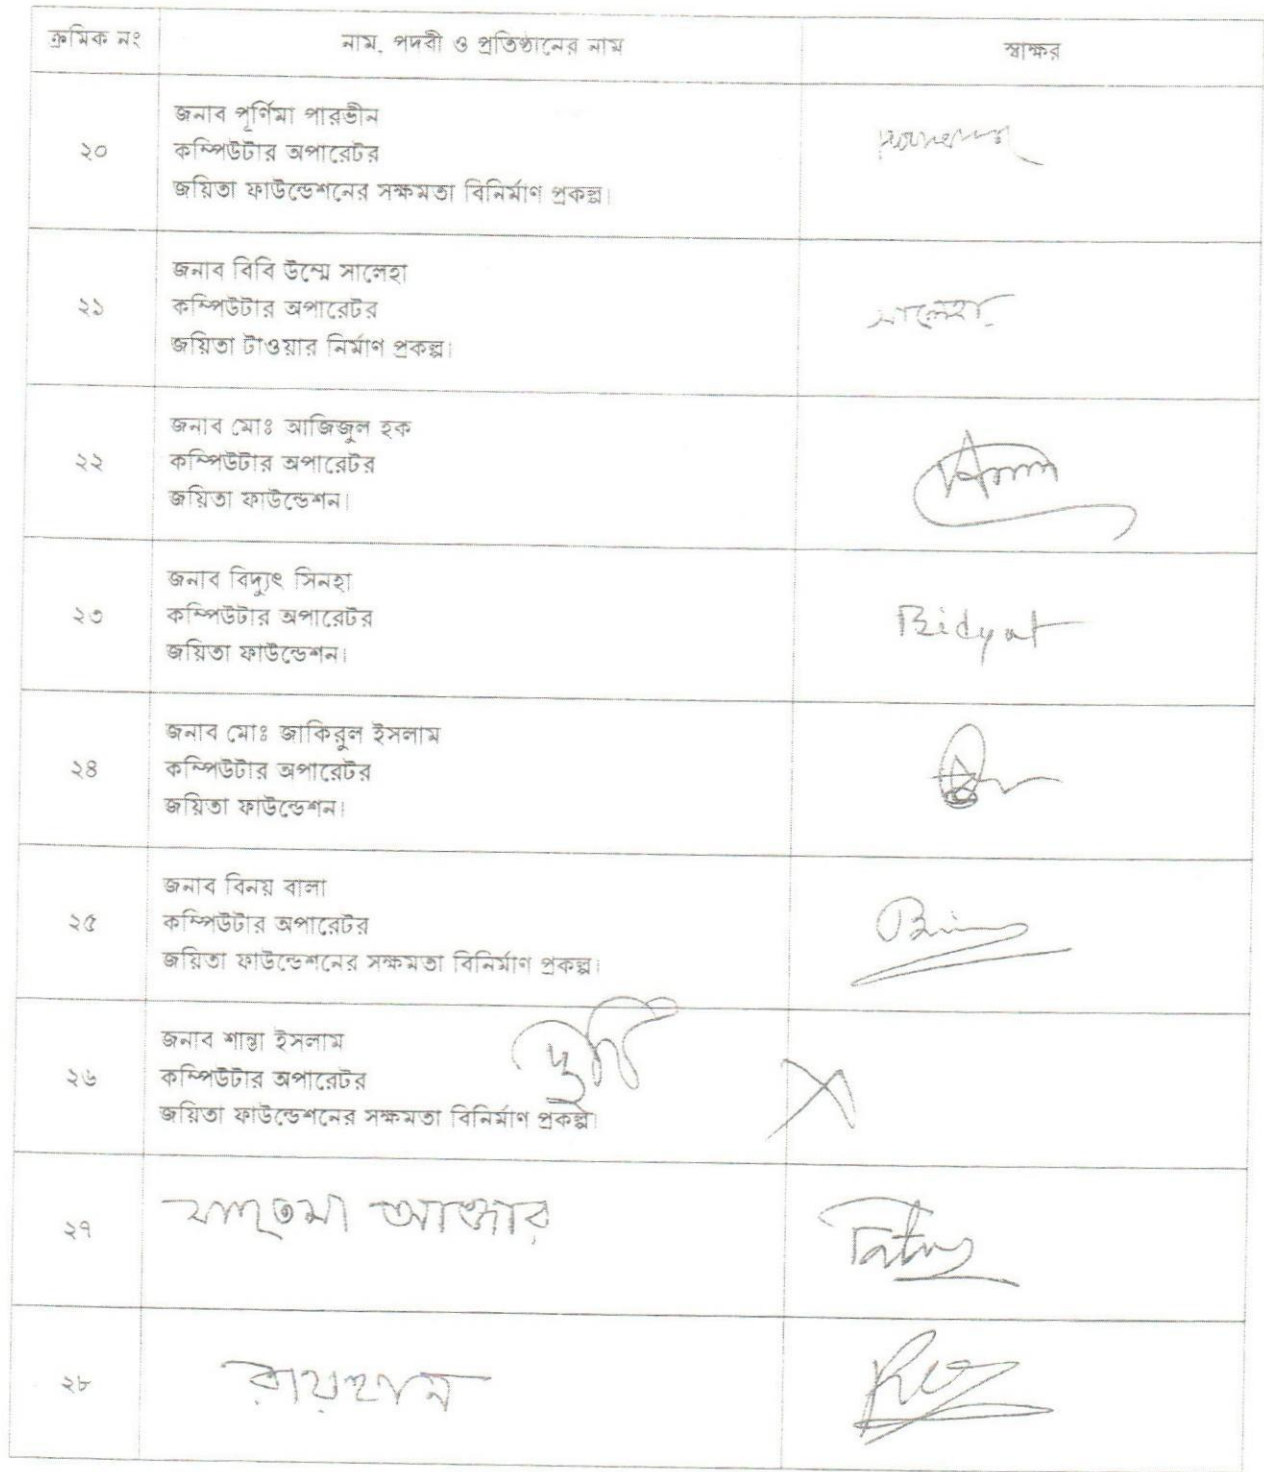 ক্রমিক নং নাম, পদবী ও প্রতিষ্ঠানের নাম স্বাক্ষর
২০
জনাব পূর্ণিমা পারভীন
কম্পিউটার অপারেটর
জয়িতা ফাউন্ডেশনের সক্ষমতা বিনির্মাণ প্রকল্প।
২১
জনাব বিবি উম্মে সালেহা
কম্পিউটার অপারেটর
জয়িতা টাওয়ার নির্মাণ প্রকল্প।
সালেহা
২২
জনাব মোঃ আজিজুল হক
কম্পিউটার অপারেটর
জয়িতা ফাউন্ডেশন।
২৩
জনাব বিদ্যুৎ সিনহা
কম্পিউটার অপারেটর
জয়িতা ফাউন্ডেশন।
Bidyut
২৪
জনাব মোঃ জাকিরুল ইসলাম
কম্পিউটার অপারেটর
জয়িতা ফাউন্ডেশন।
২৫
জনাব বিনয় বালা
কম্পিউটার অপারেটর
জয়িতা ফাউন্ডেশনের সক্ষমতা বিনির্মাণ প্রকল্প।
২৬
জনাব শান্তা ইসলাম
কম্পিউটার অপারেটর
জয়িতা ফাউন্ডেশনের সক্ষমতা বিনির্মাণ প্রকল্প।
২৭
ফাতেমা আক্তার
২৮
রায়হান